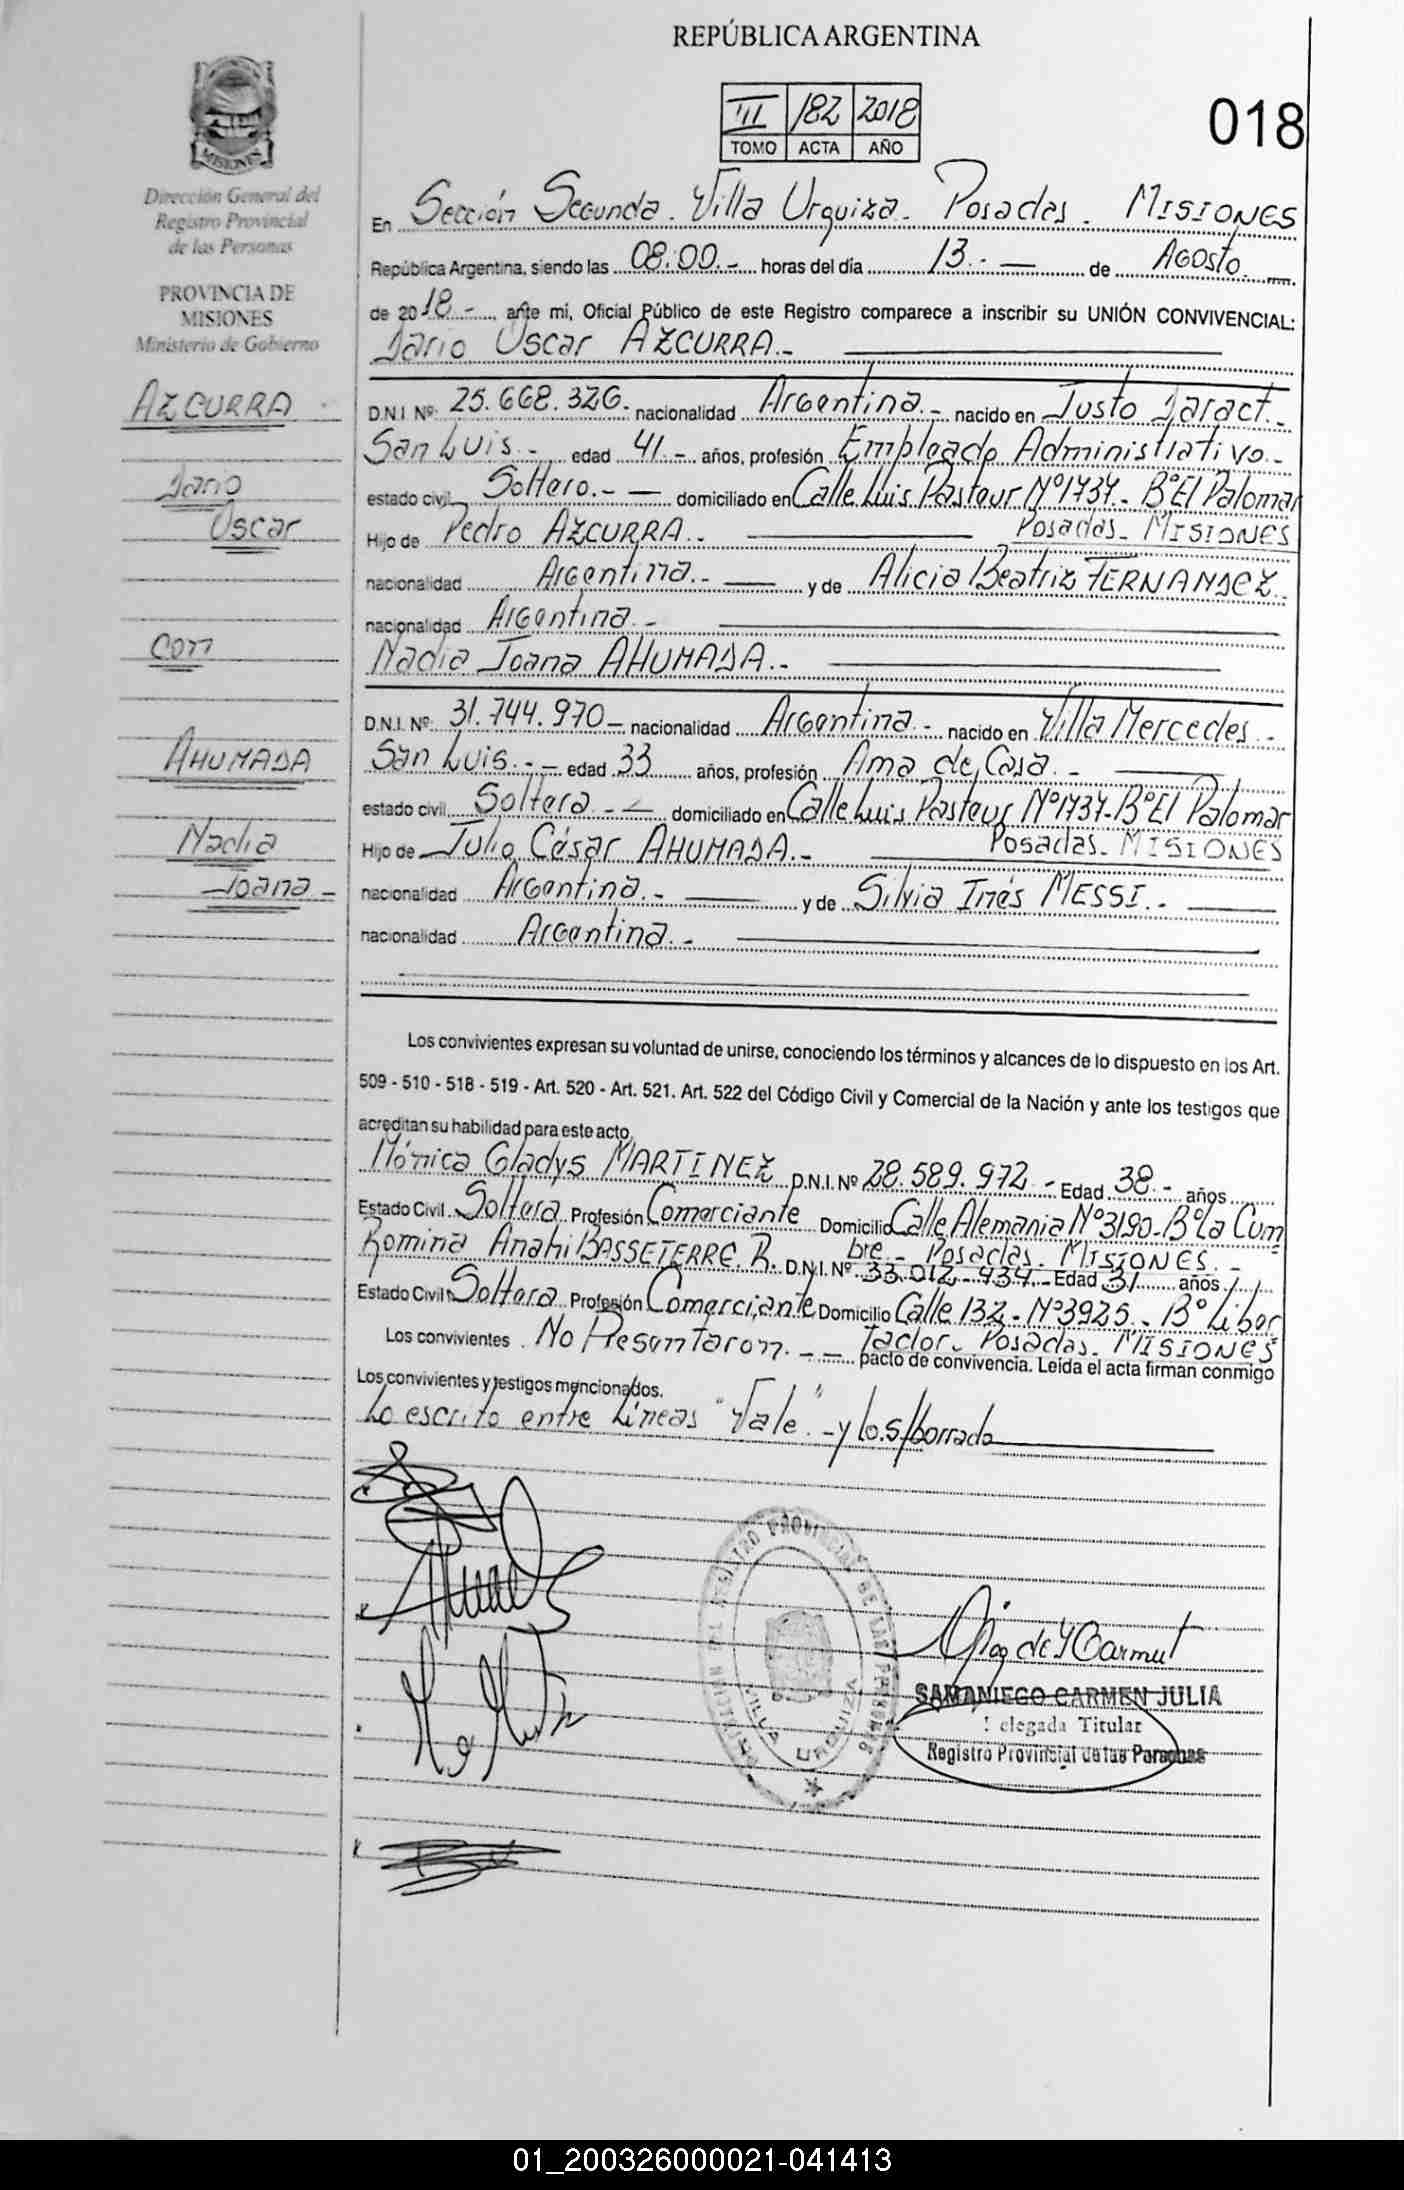 REPÚBLICA ARGENTINA
III 182 2018
TOMO ACTA AÑO
018
MISIONES
Dirección General del
Registro Provincial
de las Personas
PROVINCIA DE
MISIONES
Ministerio de Gobierno
AZCURRA
Dario
Oscar
con
AHUMADA
Nadia
Joana.-
En Sección Segunda. Villa Urquiza. Posadas. MISIONES
República Argentina, siendo las 08:00.- horas del día 13.- de Agosto
de 2018.-, ante mi, Oficial Público de este Registro comparece a inscribir su UNIÓN CONVIVENCIAL:
Dario Oscar AZCURRA.-
D.N.I. Nº 25.668.326. nacionalidad Argentina.- nacido en Justo Daract.-
San Luis.- edad 41.- años, profesión Empleado Administrativo.-
estado civil Soltero.- domiciliado en Calle Luis Pasteur Nº1737. Bº El Palomar
Posadas. MISIONES
Hijo de Pedro AZCURRA.-
nacionalidad Argentina.- y de Alicia Beatriz FERNANDEZ.
nacionalidad Argentina.-
Nadia Joana AHUMADA.-
D.N.I. Nº 31.744.970- nacionalidad Argentina.- nacido en Villa Mercedes.-
San Luis.- edad 33 años, profesión Ama de Casa.-
estado civil Soltera.- domiciliado en Calle Luis Pasteur Nº1737-Bº El Palomar
Posadas. MISIONES
Hijo de Julio César AHUMADA.-
nacionalidad Argentina.- y de Silvia Inés MESSI.-
nacionalidad Argentina.-
Los convivientes expresan su voluntad de unirse, conociendo los términos y alcances de lo dispuesto en los Art.
509 - 510 - 518 - 519 - Art. 520 - Art. 521. Art. 522 del Código Civil y Comercial de la Nación y ante los testigos que
acreditan su habilidad para este acto.
Mónica Gladys MARTINEZ D.N.I. Nº 28.589.972.- Edad 38.- años
Estado Civil Soltera Profesión Comerciante Domicilio Calle Alemania Nº3190-Bº La Cum
bre.- Posadas. MISIONES.-
Romina Anahi BASSETERRE. R. D.N.I. Nº 33.012.434.- Edad 31 años
Estado Civil Soltera Profesión Comerciante Domicilio Calle 132.- Nº3925.- Bº Liber
tador. Posadas. MISIONES
Los convivientes No Presentaron.- pacto de convivencia. Leída el acta firman conmigo
Los convivientes y testigos mencionados.
Lo escrito entre Líneas "Vale".-y lo s/borrado
REGISTRO PROVINCIAL DE LAS PERSONAS
VILLA URQUIZA
SAMANIEGO CARMEN JULIA
Delegada Titular
Registro Provincial de las Personas
01_200326000021-041413